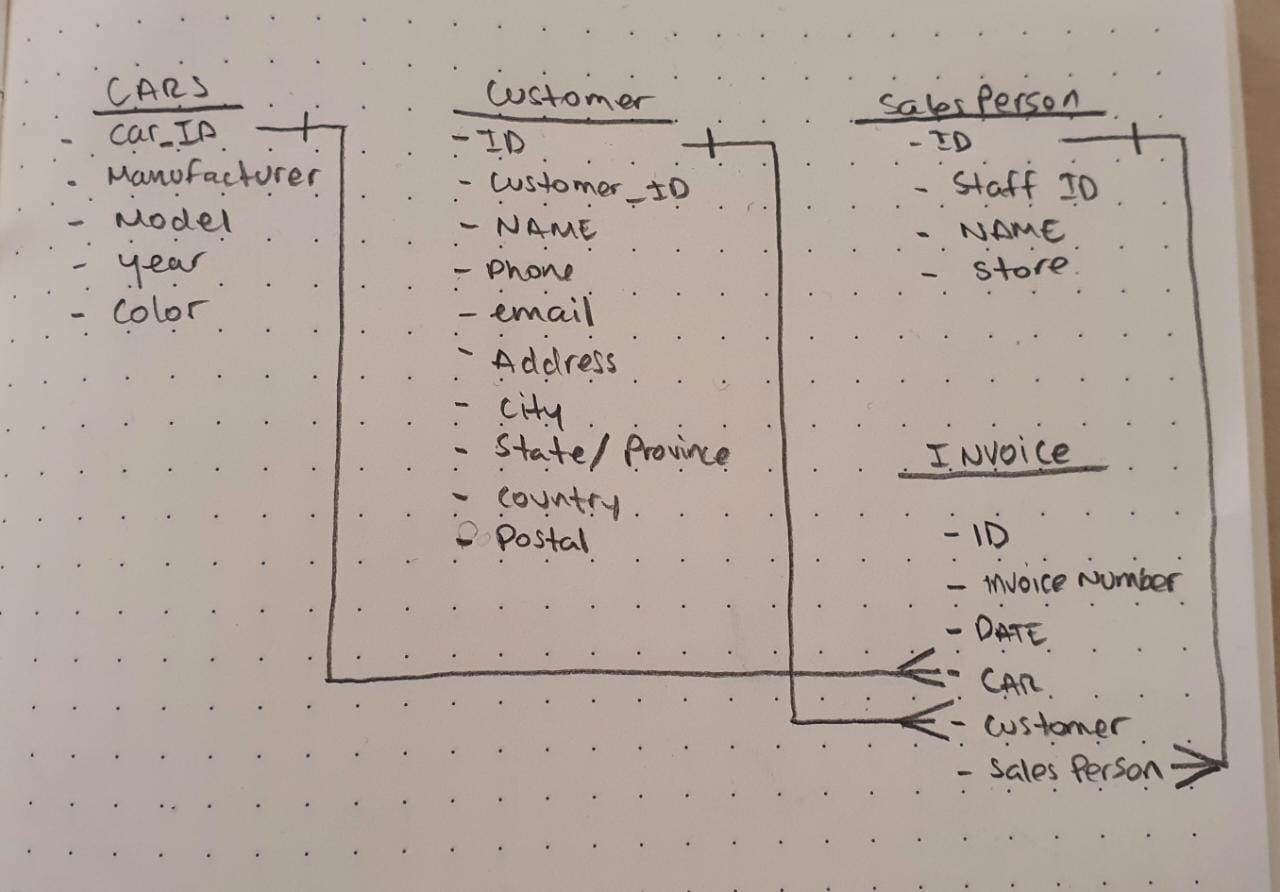 CARS
- Car_ID
- Manufacturer
- Model
- year
- Color
Customer
- ID
- Customer_ID
- NAME
- Phone
- email
- Address
- City
- State/Province
- Country
- Postal
Sales Person
- ID
- Staff ID
- NAME
- Store
INVoice
- ID
- Invoice Number
- DATE
- CAR
- Customer
- Sales Person